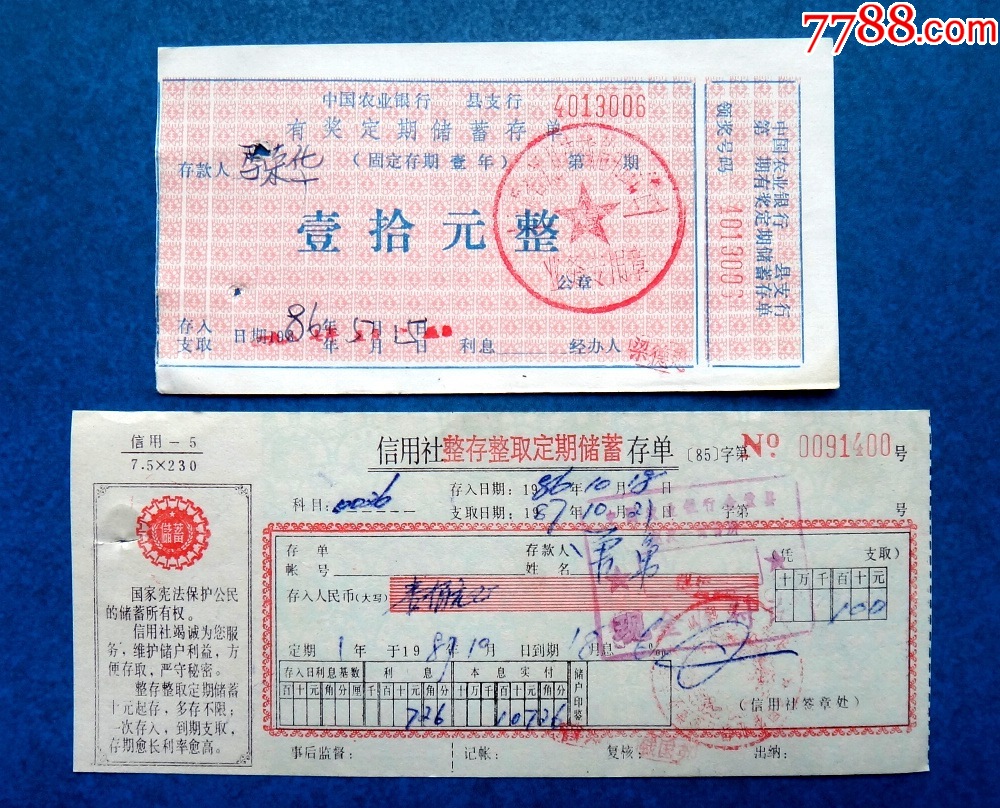 7788.com
中国农业银行 县支行
4013006
有奖定期储蓄存单
(固定存期壹年) 第 期
存款人
壹拾元整
公章
存入
支取
日期198
86年5月15日
年 月 日
利息 经办人
中国农业银行 县支行
第 期有奖定期储蓄存单
领奖号码 4013006
信用-5
7.5×230
储蓄
国家宪法保护公民
的储蓄所有权。
信用社竭诚为您服
务,维护储户利益,方
便存取,严守秘密。
整存整取定期储蓄
十元起存,多存不限;
一次存入,到期支取,
存期愈长利率愈高。
信用社整存整取定期储蓄存单
〔85〕字第 No 0091400 号
科目:
存入日期:1986年10月18日
支取日期:1987年10月21日 字第 号
存单
帐号
存款人
姓名
(凭 支取)
存入人民币(大写) 壹佰元正
十万千百十元
100
定期1年于198 年 月 日到期 月息 ‰
存入日利息基数 利息 本息实付 储户印鉴
百十元角分厘 千百十元角分 千百十元角分
726 10726
现金付讫
(信用社签章处)
事后监督: 记帐: 复核: 出纳: